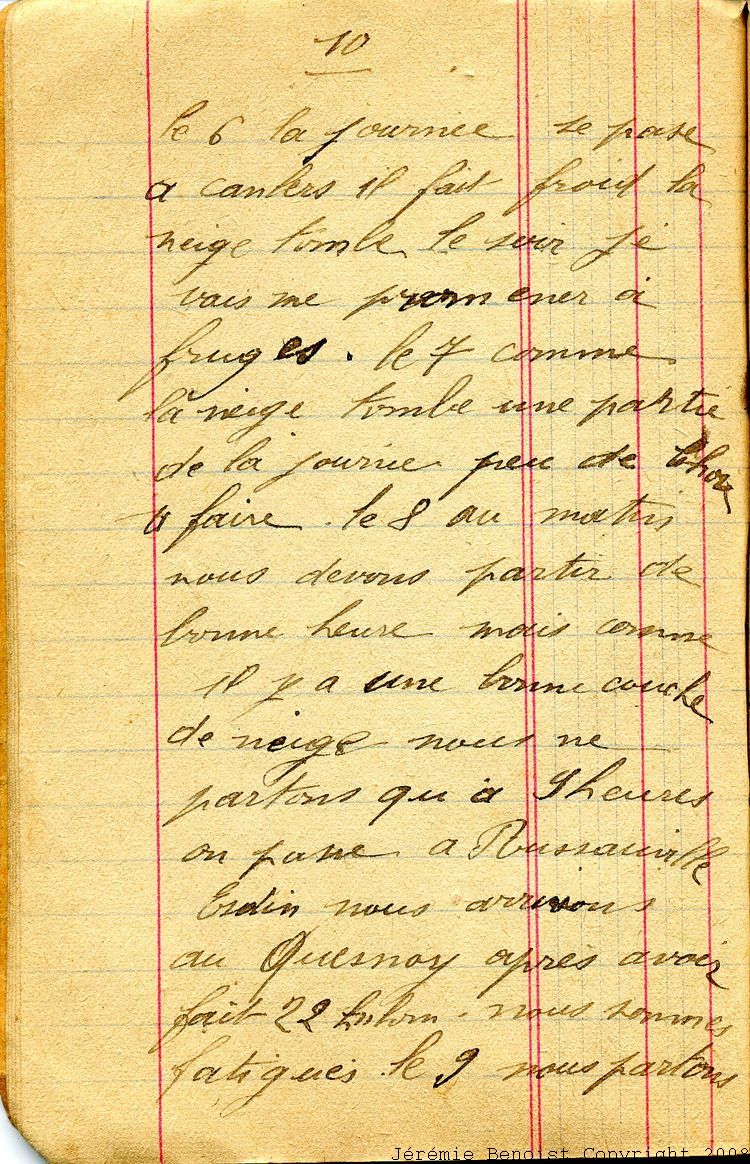 10
le 6 la journee se passe
a canlers il fait froid la
neige tombe le soir je
vais me promener à
fruges. le 7 comme
la neige tombe une partie
de la journee peu de chose
a faire. le 8 au matin
nous devons partir de
bonne heure mais comme
il y a une bonne couche
de neige nous ne
partons qu a 9 heures
on passe a Russauville
Esdin nous arrivons
au Quesnoy apres avoir
fait 22 nous sommes
fatigués. le 9 nous partons
Jérémie Benoist Copyright